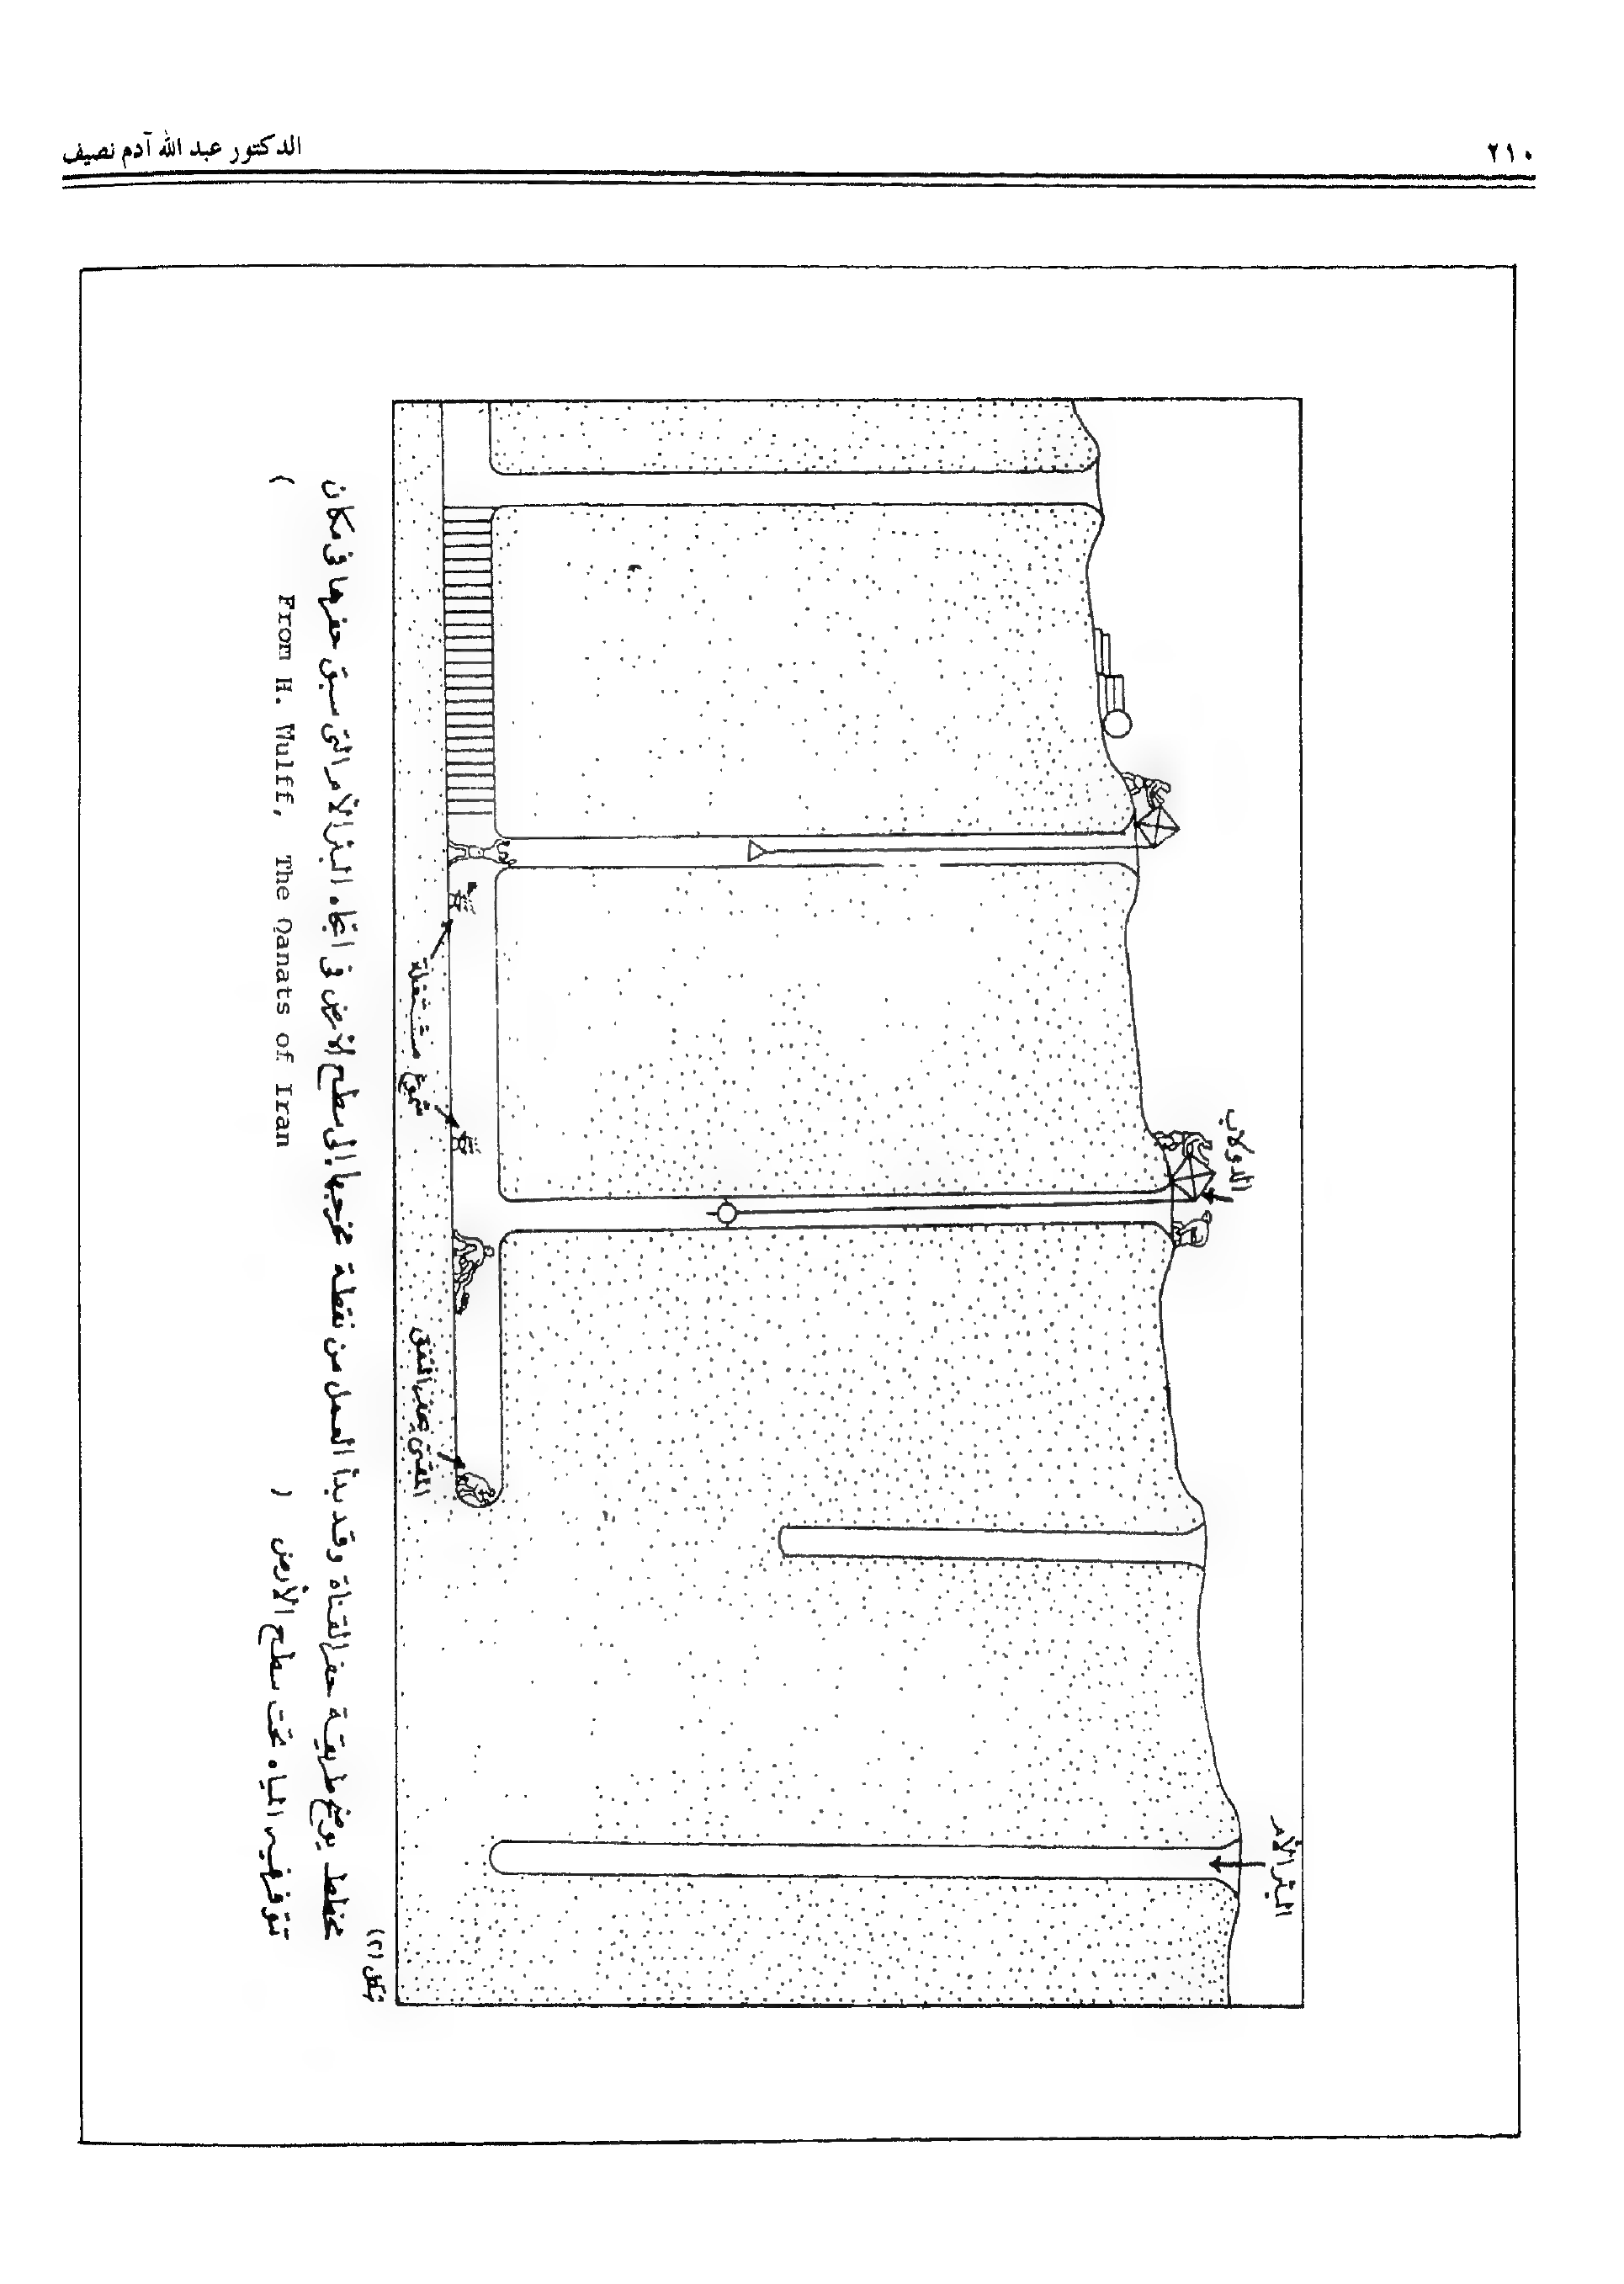 ٢١٠
الدكتور عبد الله آدم نصيف
البئر الأم
الدولاب
شموع مشتعلة
المقني يحفر النفق
شكل (٢)
مخطط يوضح طريقة حفر القناة وقد بدأ العمل من نقطة مخرجها إلى سطح الأرض في اتجاه البئر الأم التي سبق حفرها في مكان
تتوفر فيه المياه تحت سطح الأرض ( From H. Wulff, The Qanats of Iran )